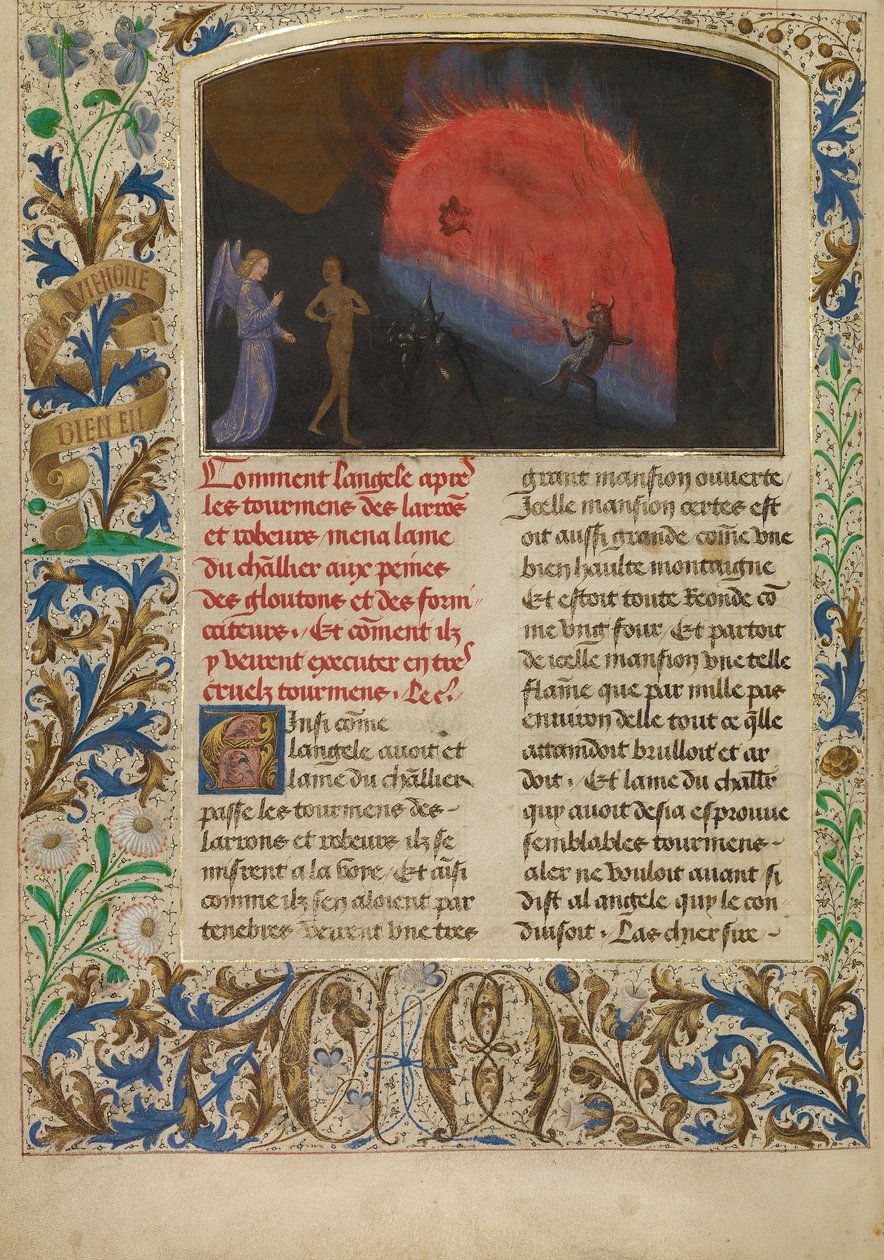 VIEHGNE
BIEN EN
Comment langele apres
les tourmens des larrõs
et robeurs mena lame
du chãllier aux peines
des gloutons et des forni
cateurs. Et cõment ilz
y veirent executer en tres
cruelz tourmens. Le c̃.
Ainsi cõme
langele auoit et
lame du chãllier
passe les tourmens des-
larrons et robeurs/ ilz se
misrent a la voye/ Et aĩsi
comme ilz sen aloient par
tenebres veirent vne tres
grant mansion ouuerte/
Icelle mansion certes est
oit aussi grande cõme vne
bien haulte montaigne
Et estoit toute Reonde cõ
me vng four/ Et partoit
de icelle mansion vne telle
flãme que par mille pas
enuiron delle tout ce q̃lle
attaindoit brulloit et ar
doit. Et lame du challr̃
quy auoit desia esprouue
semblables tourmens-
aler ne vouloit auant si
dist al angele quy le con
duisoit. Las chier sire-